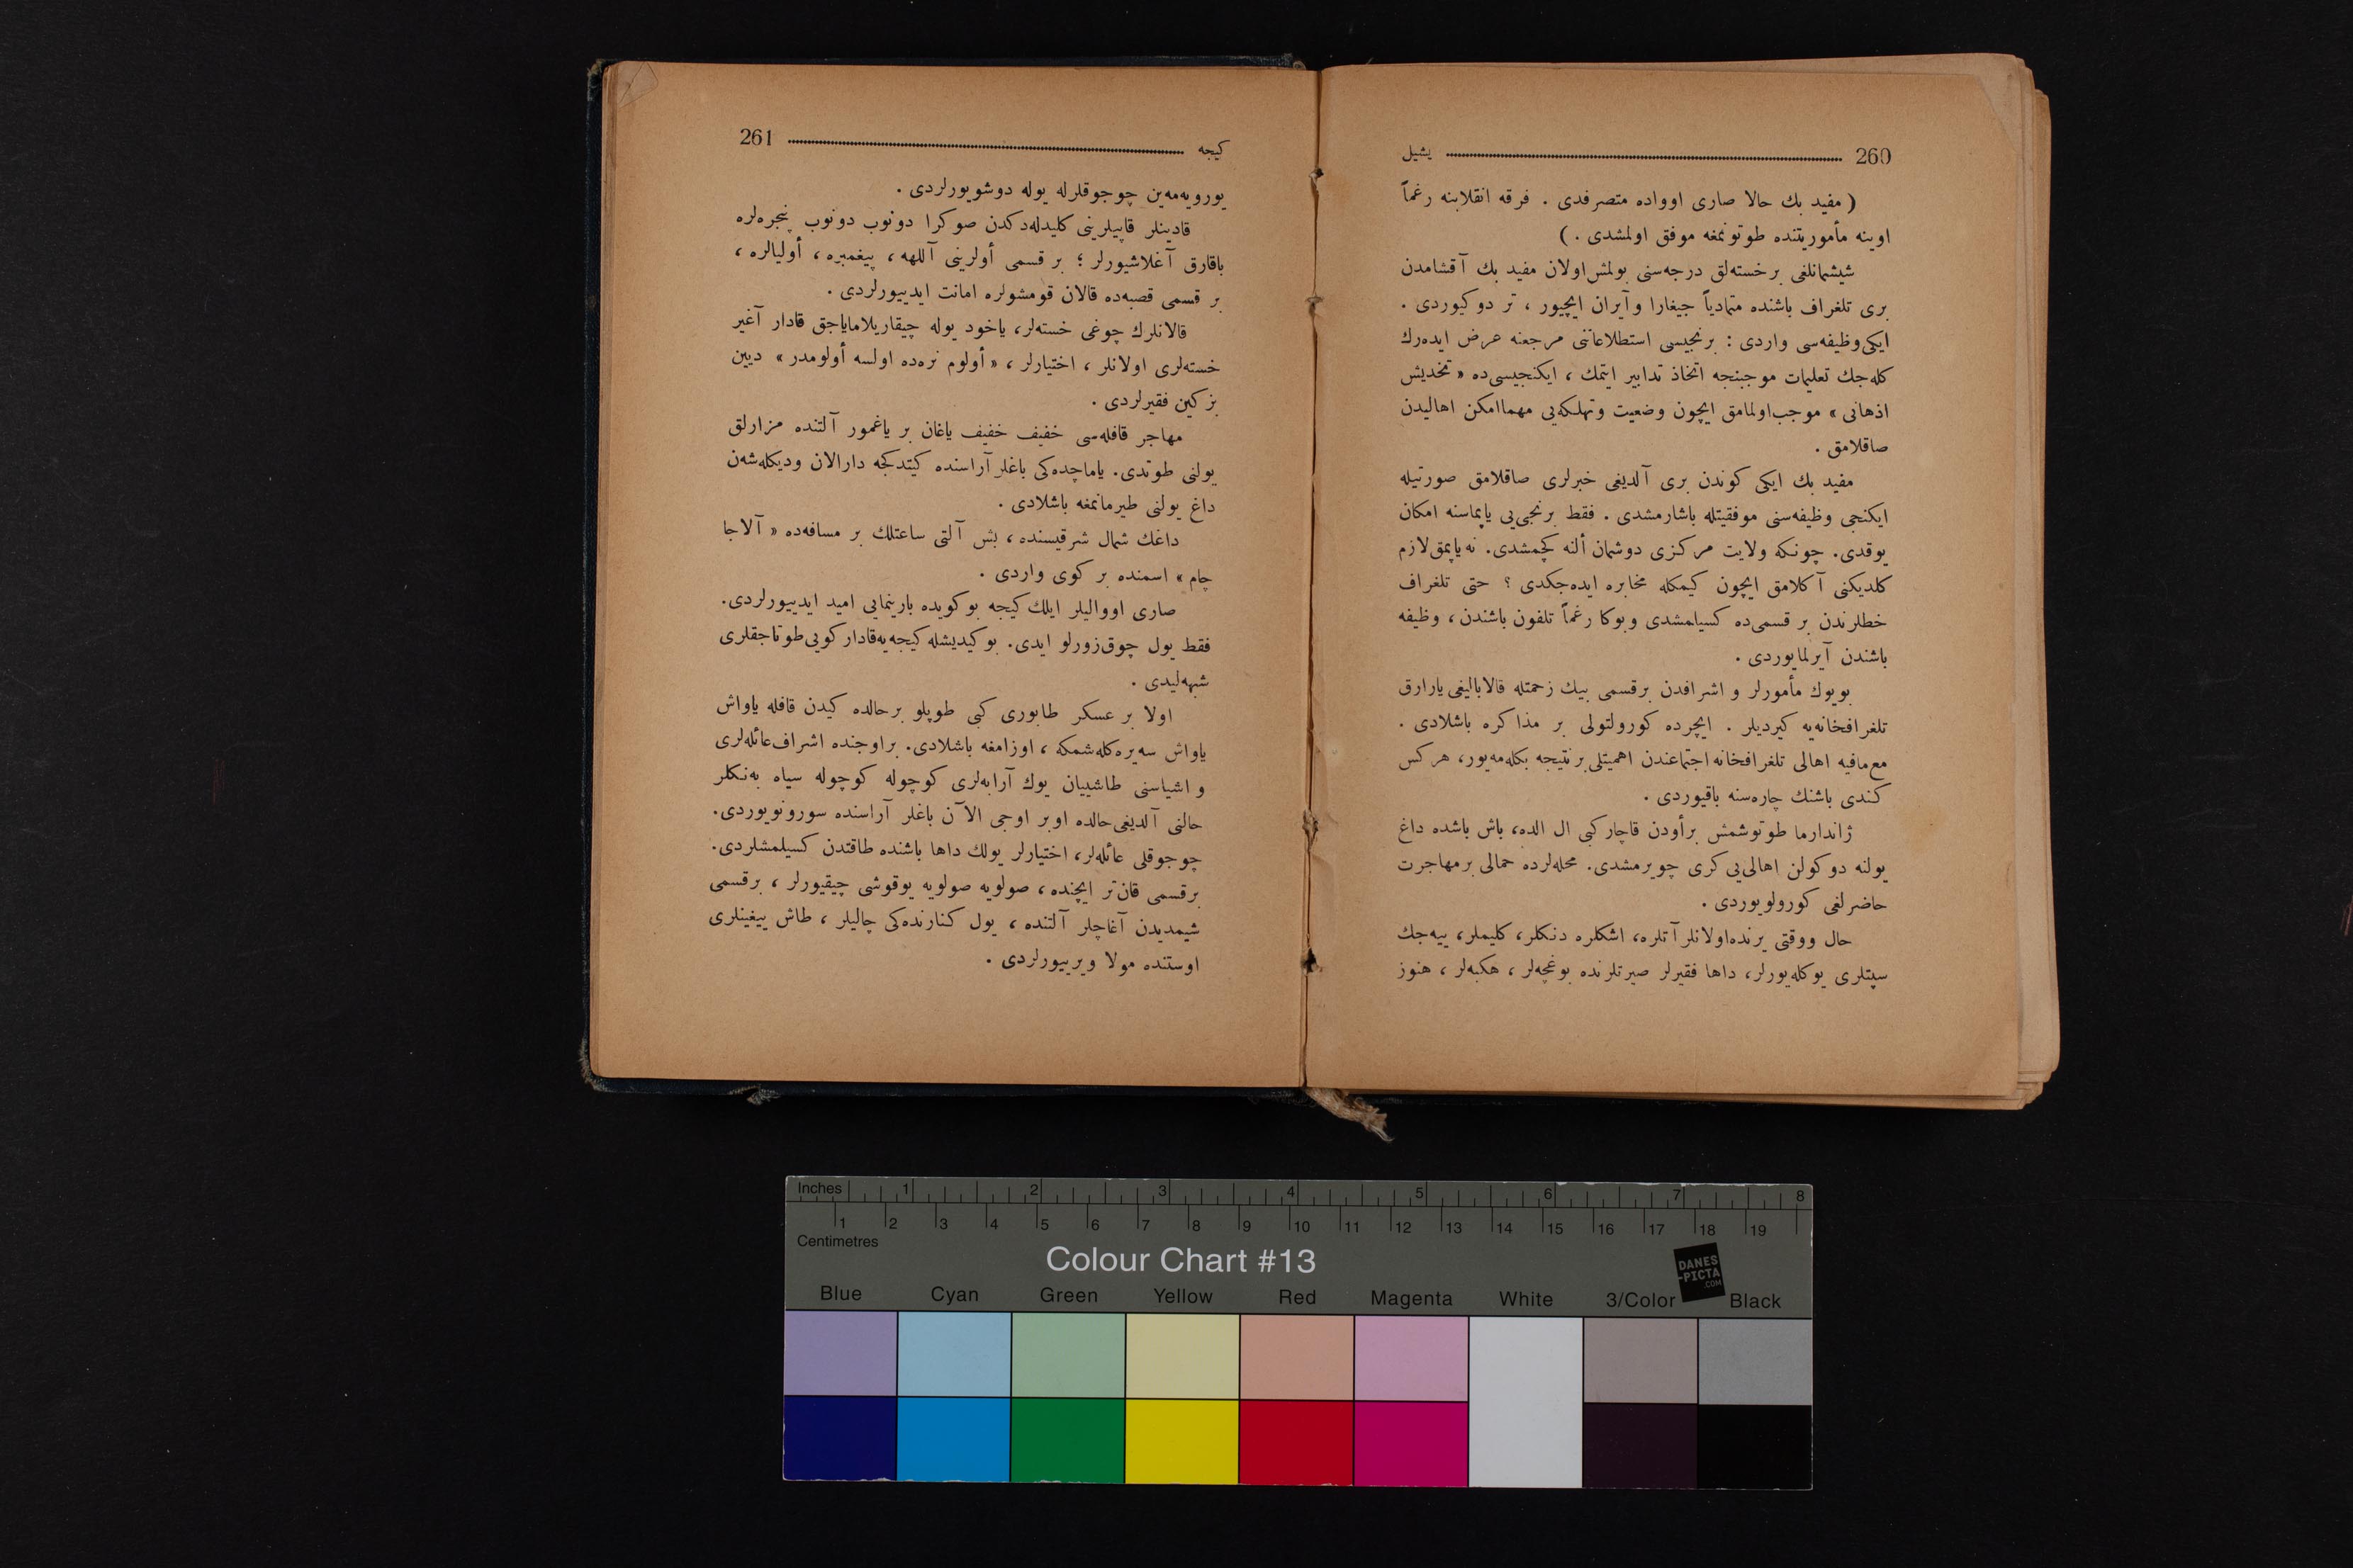 260 يشيل
( مفيد بك حالا صارى اوواده متصرفدى . فرقه انقلابنه رغماً
اوينه مأموريتنده طوتونمغه موفق اولمشدى . )
شيشمانلغى برخسته‌لق درجه‌سنى بولمش‌اولان مفيد بك آقشامدن
برى تلغراف باشنده متمادياً جيغارا وآيران ايچيور ، تر دوكيوردى .
ايكى‌وظيفه‌سى واردى : برنجيسى استطلاعاتنى مرجعنه عرض ايده‌رك
كله‌جك تعليمات موجبنجه اتخاذ تدابير ايتمك ، ايكنجيسى‌ده « تخديش
اذهانى » موجب‌اولمامق ايچون وضعيت وتهلكه‌يى مهماامكن اهاليدن
صاقلامق .
مفيد بك ايكى كوندن برى آلديغى خبرلرى صاقلامق صورتيله
ايكنجى وظيفه‌سنى موفقيتله باشارمشدى . فقط برنجى‌يى ياپماسنه امكان
يوقدى. چونكه ولايت مركزى دوشمان ألنه كچمشدى. نه‌ياپمق‌لازم
كلديكنى آكلامق ايچون كيمكله مخابره ايده‌جكدى ؟ حتى تلغراف
خطلرندن بر قسمى‌ده كسيلمشدى وبوكا رغماً تلفون باشندن ، وظيفه
باشندن آيرلمايوردى .
بويوك مأمورلر و اشرافدن برقسمى بيك زحمتله قالاباليغى يارارق
تلغرافخانه‌يه كيرديلر . ايچرده كورولتولى بر مذاكره باشلادى .
مع‌مافيه اهالى تلغرافخانه اجتماعندن اهميتلى‌برنتيجه بكله‌مه‌يور، هركس
كندى باشنك چاره‌سنه باقيوردى .
ژاندارما طوتوشمش برأودن قاچار كبى ال الده، باش باشده داغ
يولنه دوكولن اهالى‌يى كرى چويرمشدى. محله‌لرده حمالى برمهاجرت
حاضرلغى كورولويوردى .
حال ووقتى يرنده‌اولانلر آتلره، اشكلره دنكلر، كليملر، ييه‌جك
سپتلرى يوكله‌يورلر، داها فقيرلر صيرتلرنده بوغچه‌لر ، هكبه‌لر ، هنوز
كيجه 261
يورويه‌مه‌ين چوجوقلرله يوله دوشويورلردى .
قادينلر قاپيلرينى كليدله‌دكدن صوكرا دونوب دونوب پنجره‌لره
باقارق آغلاشيورلر ؛ بر قسمى أولرينى آللهه ، پيغمبره ، أوليالره ،
بر قسمى قصبه‌ده قالان قومشولره امانت ايدييورلردى .
قالانلرك چوغى خسته‌لر، ياخود يوله چيقاريلاماياجق قادار آغير
خسته‌لرى اولانلر ، اختيارلر ، « أولوم نره‌ده اولسه أولومدر » ديين
بزكين فقيرلردى .
مهاجر قافله‌سى خفيف خفيف ياغان بر ياغمور آلتنده مزارلق
يولنى طوتدى. ياماچده‌كى باغلر آراسنده كيتدكجه دارالان وديكله‌شه‌ن
داغ يولنى طيرمانمغه باشلادى .
داغك شمال شرقيسنده ، بش آلتى ساعتلك بر مسافه‌ده « آلاجا
چام » اسمنده بر كوى واردى .
صارى اوواليلر ايلك كيجه بوكويده بارينمايى اميد ايدييورلردى.
فقط يول چوق‌زورلو ايدى. بوكيديشله كيجه‌يه‌قادار كويى‌طوتاجقلرى
شبهه‌ليدى .
اولا بر عسكر طابورى كبى طوپلو برحالده كيدن قافله ياواش
ياواش سه‌يره‌كله‌شمكه ، اوزامغه باشلادى. براوجنده اشراف‌عائله‌لرى
و اشياسنى طاشييان يوك آرابه‌لرى كوچوله كوچوله سياه به‌نكلر
حالنى آلديغى‌حالده اوبر اوجى الآن باغلر آراسنده سورونويوردى.
چوجوقلى عائله‌لر، اختيارلر يولك داها باشنده طاقتدن كسيلمشلردى.
برقسمى قان‌تر ايچنده ، صولويه صولويه يوقوشى چيقيورلر ، برقسمى
شيمديدن آغاچلر آلتنده ، يول كنارنده‌كى چاليلر ، طاش ييغينلرى
اوستنده مولا ويرييورلردى .
Inches 1 2 3 4 5 6 7 8
1 2 3 4 5 6 7 8 9 10 11 12 13 14 15 16 17 18 19
Centimetres
Colour Chart #13
DANES
-PICTA
.COM
Blue Cyan Green Yellow Red Magenta White 3/Color Black